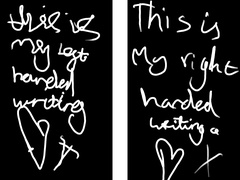 this is
my left
handed
writing
This is
My right
handed
writing